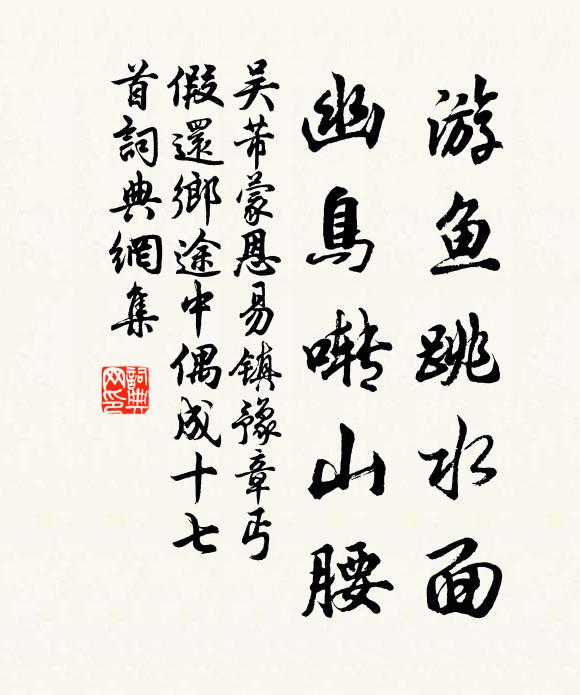 游鱼跳水面
幽鳥啭山腰
吴芾蒙恩易鎮豫章丐
假還鄉途中偶成十七
首詞典網集
詞典
网印